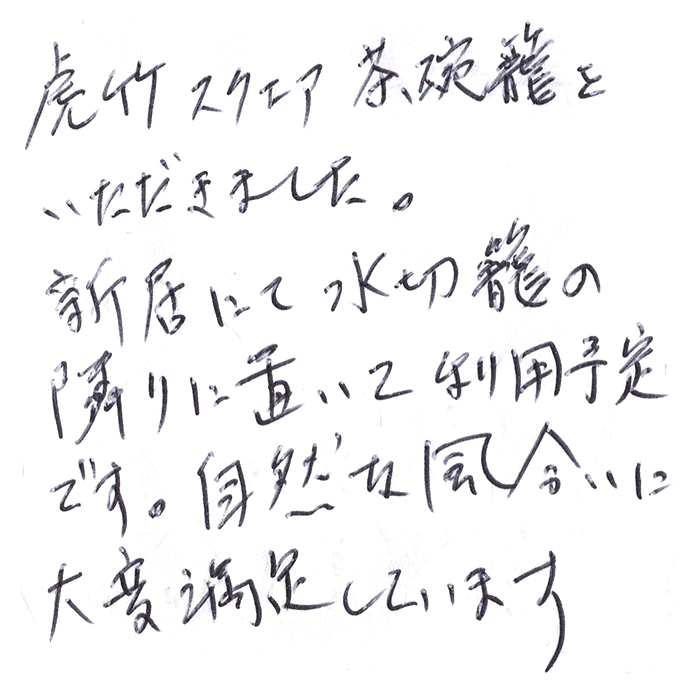 虎竹スクエア茶碗籠を
いただきました。
新居にて水切籠の
隣りに置いて利用予定
です。自然な風合いに
大変満足しています